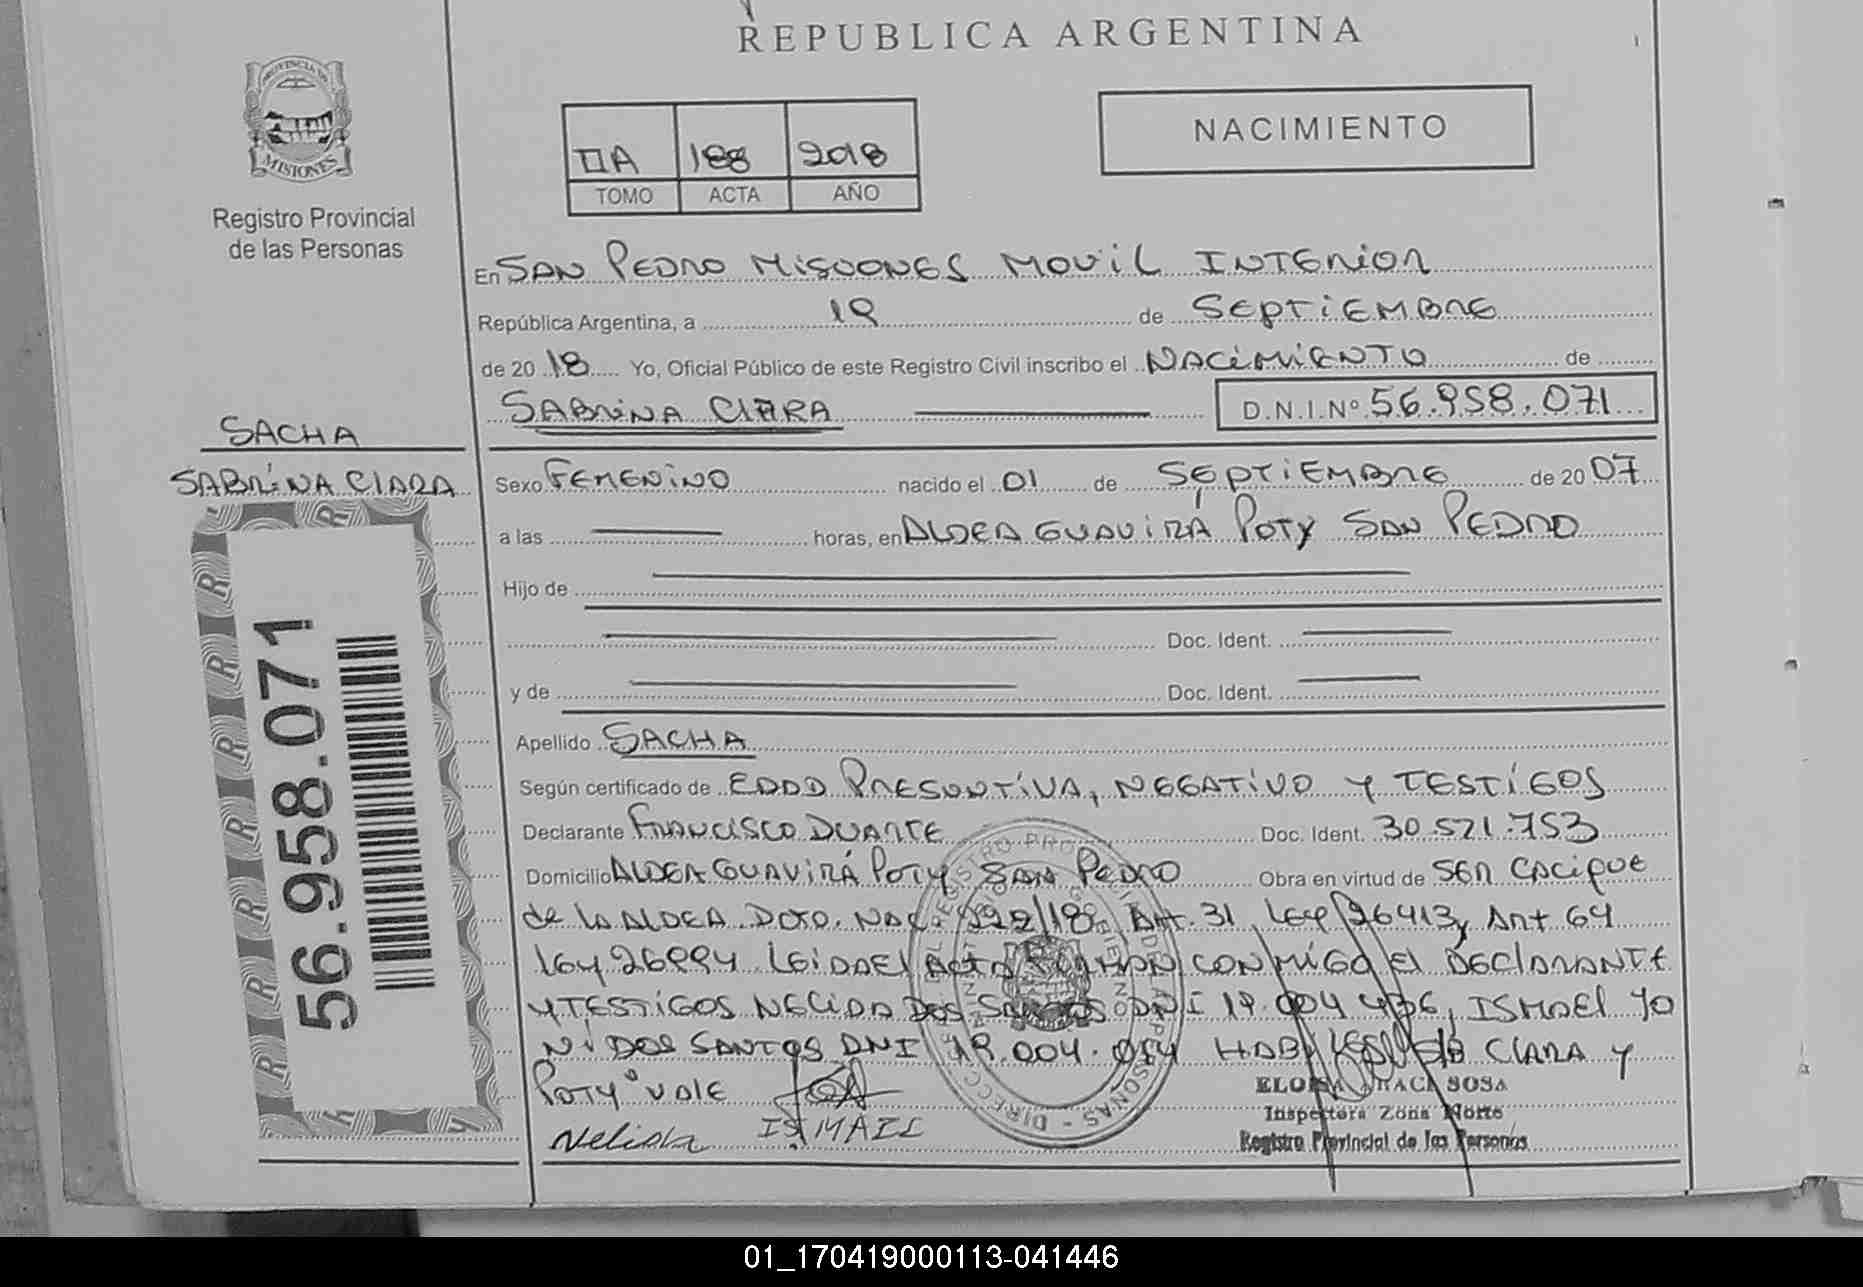 REPUBLICA ARGENTINA
PROVINCIA DE
MISIONES
Registro Provincial
de las Personas
II A 188 2018
TOMO ACTA AÑO
NACIMIENTO
En SAN PEDRO MISIONES MOVIL INTERIOR
República Argentina, a 19 de SEPTIEMBRE
de 20 18 Yo, Oficial Público de este Registro Civil inscribo el NACIMIENTO de
SABRINA CLARA D.N.I.Nº 56.958.071
SACHA
SABRINA CLARA
56.958.071
Sexo FEMENINO nacido el 01 de SEPTIEMBRE de 20 07
a las horas, en ALDEA GUAVIRÁ POTY SAN PEDRO
Hijo de
Doc. Ident.
y de Doc. Ident.
Apellido SACHA
Según certificado de EDAD PRESUNTIVA, NEGATIVO Y TESTIGOS
Declarante FRANCISCO DUARTE Doc. Ident. 30.521.753
Domicilio ALDEA GUAVIRÁ POTY SAN PEDRO Obra en virtud de SER CACIQUE
de la ALDEA. DCTO. NAC 222/18 Art. 31 Ley 26413, Art 64
Ley 26994 LEIDA EL ACTA FIRMAN CONMIGO El DECLARANTE
Y TESTIGOS NELIDA DOS SANTOS DNI 19.004.436, ISMAEL YO
NI DOS SANTOS DNI 19.004.014 CLARA Y
POTY VALE
Nelida ISMAEL
ELOISA ARACI SOSA
Inspectora Zona Norte
Registro Provincial de las Personas
01_170419000113-041446